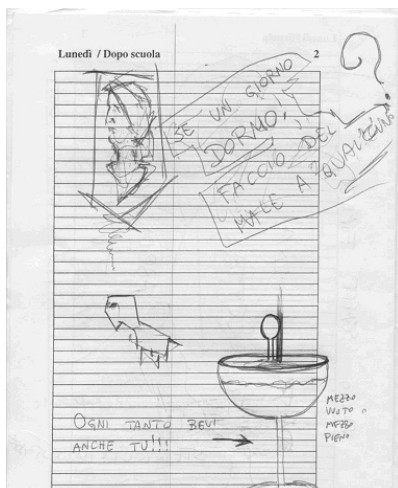 Lunedì / Dopo scuola 2
SE UN GIORNO
DORMO!
FACCIO DEL
MALE A QUALCUNO
OGNI TANTO BEVI
ANCHE TU!!!
MEZZO
VUOTO O
MEZZO
PIENO
?